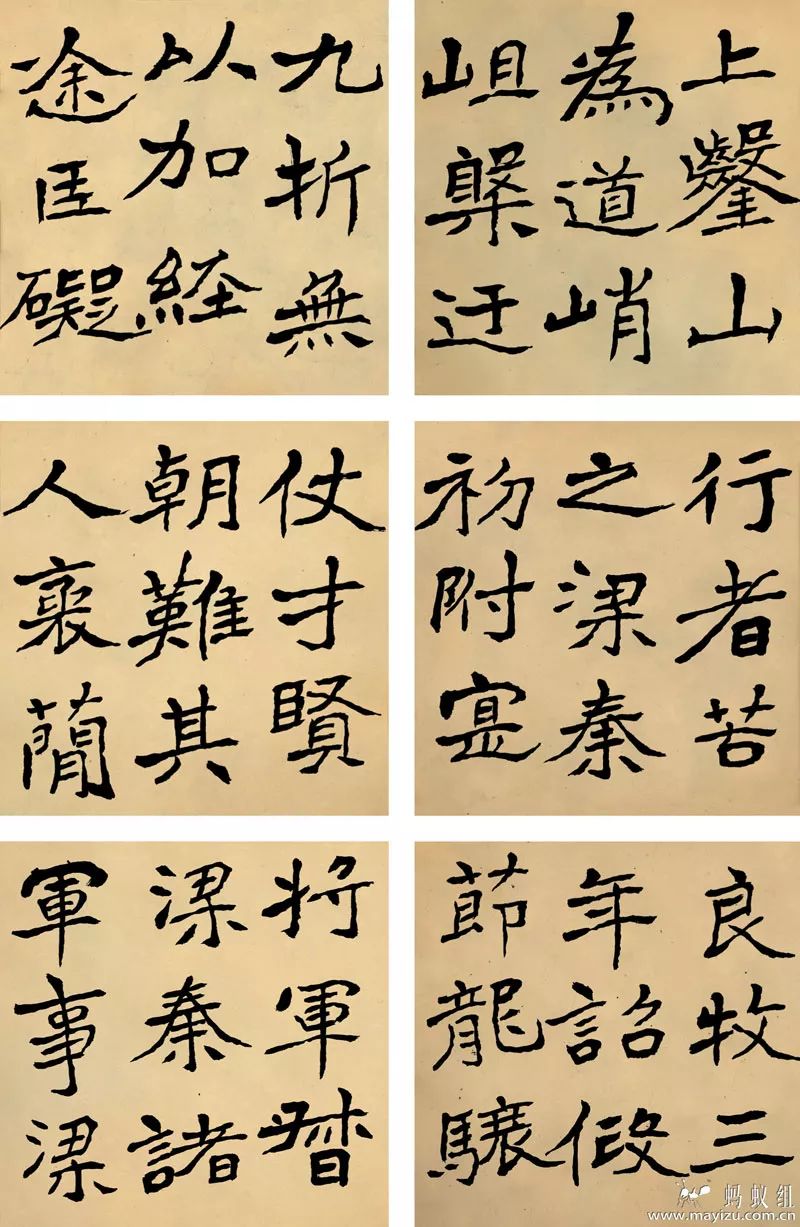 上鑿山
為道峭
岨槃迂
九折無
以加経
途巨礙
行者苦
之梁秦
初附寔
仗才賢
朝難其
人褒蕳
良牧三
年詔假
莭龍驤
将軍督
梁秦諸
軍事梁
蚂蚁组
www.mayizu.com.cn